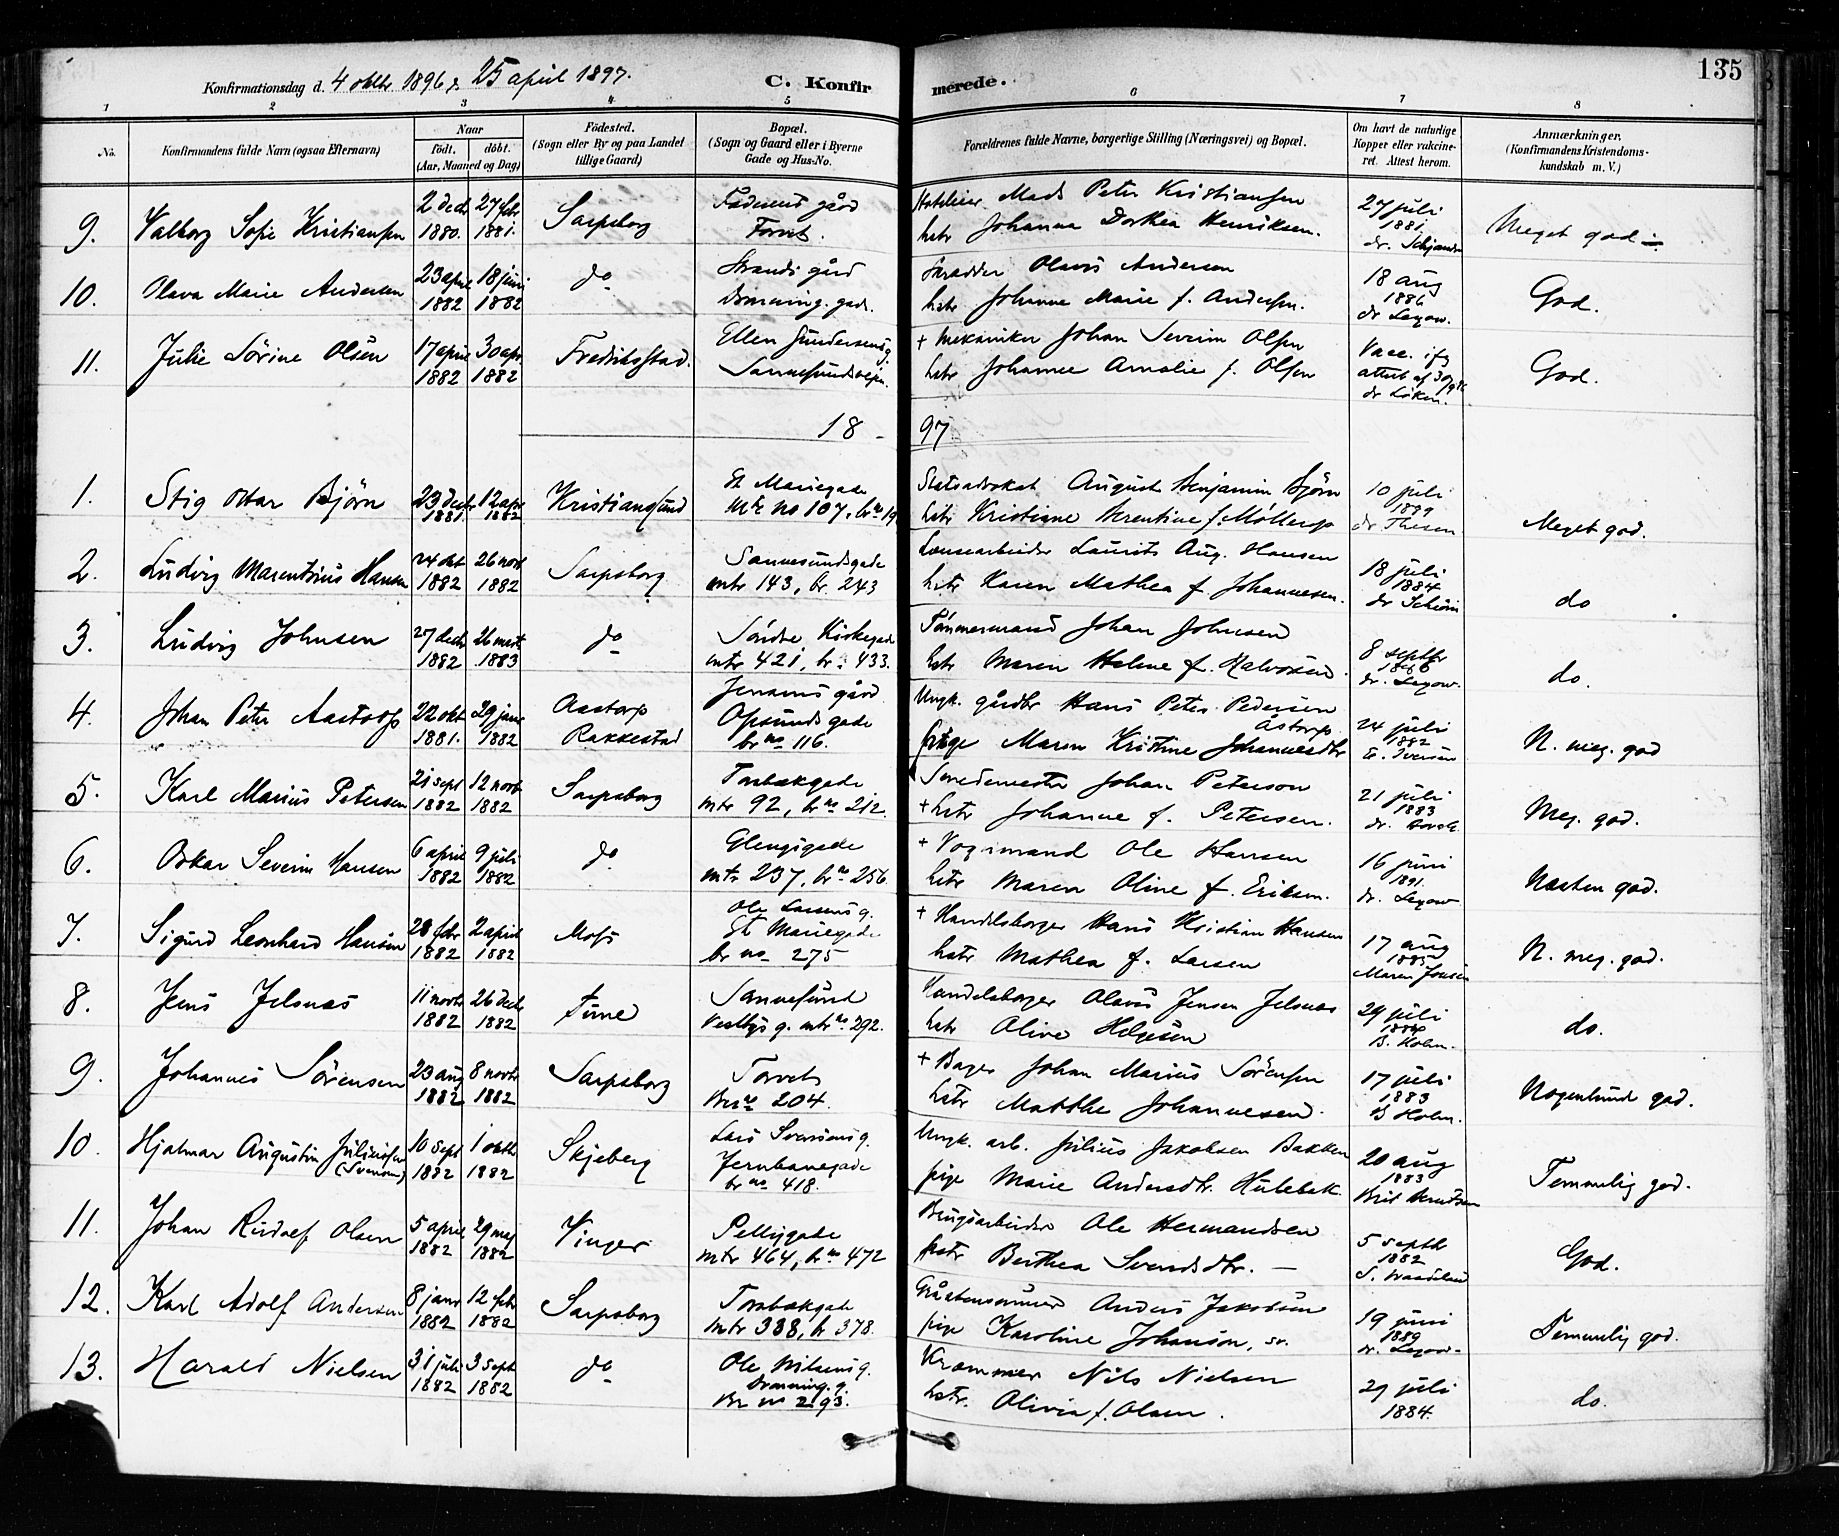 135
Konfirmationsdag d. 4 oktbr 1896 & 25 april 1897.
C. Konfirmerede.
1 2 3 4 5 6 7 8
No.
Konfirmandens fulde Navn (ogsaa Efternavn)
Naar
födt. döbt.
(Aar, Maaned og Dag)
Födested.
(Sogn eller By og paa Landet
tillige Gaard)
Bopæl.
(Sogn og Gaard eller i Byerne
Gade og Hus-No.
Forældrenes fulde Navne, borgerlige Stilling (Næringsvei) og Bopæl.
Om havt de naturlige
Kopper eller vakcine-
ret. Attest herom.
Anmærkninger.
(Konfirmandens Kristendoms-
kundskab m. V.)
9. Valborg Sofie Kristiansen
2 decbr 1880. 27 febr 1881.
Sarpsborg
gård
Torvet.
Mads Peter Kristiansen
hstr Johanna Dorthea Henriksen.
27 juli
1881
Meget god
10. Olava Marie Andersen
23 april 1882 18 juni 1882
do
Strands gård
Dronning. gade.
Skrædder Olavus Andersen
hstr Johanne Marie f. Andersen.
18 aug
1886
dr Legow.
God.
11. Julie Sörine Olsen
17 april 1882 30 apr. 1882
Fredrikstad.
Ellen Gundersens g.
Sannesundsveien.
+ Mekaniker Johan Severin Olsen
hstr Johanne Amalie f. Olsen
Vacc. ifg
attest af 30/9 86
dr Löken.
God.
18 - 97
1. Stig Ottar Björn
23 decbr 1881. 12 apr 1882
Kristiansund
St Mariegade
Mtr no 107, br no 19
Statsadvokat August Benjamin Björn
hstr Kristiane Berentine f. Möllerop
10 juli
dr Thesen
Meget god.
2. Ludvig Marentius Hansen
24 okt 1882 26 novb 1882
Sarpsborg
Sannesundsgade
mtr 143, br. 243
Lænsearbeider Laurits Aug. Hansen
hstr Karen Mathea f. Johannesen.
18 juli
1884
dr
do
3. Ludvig Johnsen
27 decbr 1882 26 marts 1883
do
Söndre Kirkegade
mtr 421, br. 433.
Tömmermand Johan Johnsen
hstr Maren Helene f. Halvorsen.
8 septbr
1886
dr. Legow.
do.
4. Johan Peter Aastorp
22 okt 1881. 29 janr 1882
Aastorp
Rakkestad
Jensens gård
Opsunds gade
br no 116.
Ungk. gårdbr Hans Peter Pedersen
Åstorp
pige Maren Kristine Johannesdtr
24 juli
1882
E. Iversen
N. meg. god
5. Karl Marius Petersen
21 sept 1882 12 novb 1882
Sarpsborg
Torsbækgade
mtr 92, br no 212.
Smedemester Johan Peterson
+ hstr Johanne f. Petersen.
21 juli
1883
Meg. god.
6. Oskar Severin Hansen
6 april 1882 9 juli 1882
do.
Glengsgade
mtr 237, br no 256.
+ Vognmand Ole Hansen
hstr Maren Oline f. Eriksen.
16 juni
1891.
dr. Legow
Næsten god.
7. Sigurd Leonhard Hansen
28 febr 1882 2 april 1882
Moss
Ole Larsens g.
St Mariegade
br no 275
+ Handelsborger Hans Kristian Hansen
hstr Mathea f. Larsen
17 aug
1885
Maren Jonsen
N. meg. god.
8. Jens Jelsnæs
11 novbr 1882 26 decbr 1882
Tune
Sannesund
Vestbys g. mtr no 292.
Handelsborger Olavus Jensen Jelsnæs
hstr Olive Helgesen
29 juli
1884
B. Holm.
do.
9. Johannes Sörensen
23 aug 1882 8 novbr 1882
Sarpsborg
Torvet
Br no 204.
+ Bager Johan Marius Sörensen
hstr Matthe Johannesen.
17 juli
1883
B Holm.
Nogenlunde god.
10. Hjalmar Augustin Juliussen
(Svensen)
10 sept 1882 1 oktb 1882
Skjeberg
Lars Svensens g.
Jernbanegade
br no 418.
Ungk. arb. Julius Jakobsen Bakken
pige Marie Andersdtr. Hulebæk.
20 aug
1883
Temmelig god.
11. Johan Rudolf Olsen
5 april 1882 29 maj 1882
Vinger
Pellygade
mtr 464, br no 472
Brugsarbeider Ole Hermandsen
hstr Berthea Svendsdtr. —
5 septb
1882
God.
12. Karl Adolf Andersen
8 janr 1882 12 febr 1882
Sarpsborg
Torsbækgade
Mtr 388, br 378.
Gråstensminer Anders Jakobsen
pige Karoline Johanson, sv.
19 juni
1889
dr. Legow
Temmelig god.
13. Harald Nielsen
31 juli 1882 3 sept 1882
do
Ole Nilsens g.
Dronning. g.
Br no 293.
Kræmmer Nils Nielsen
hstr. Olivia f. Olsen.
29 juli
1884.
do.